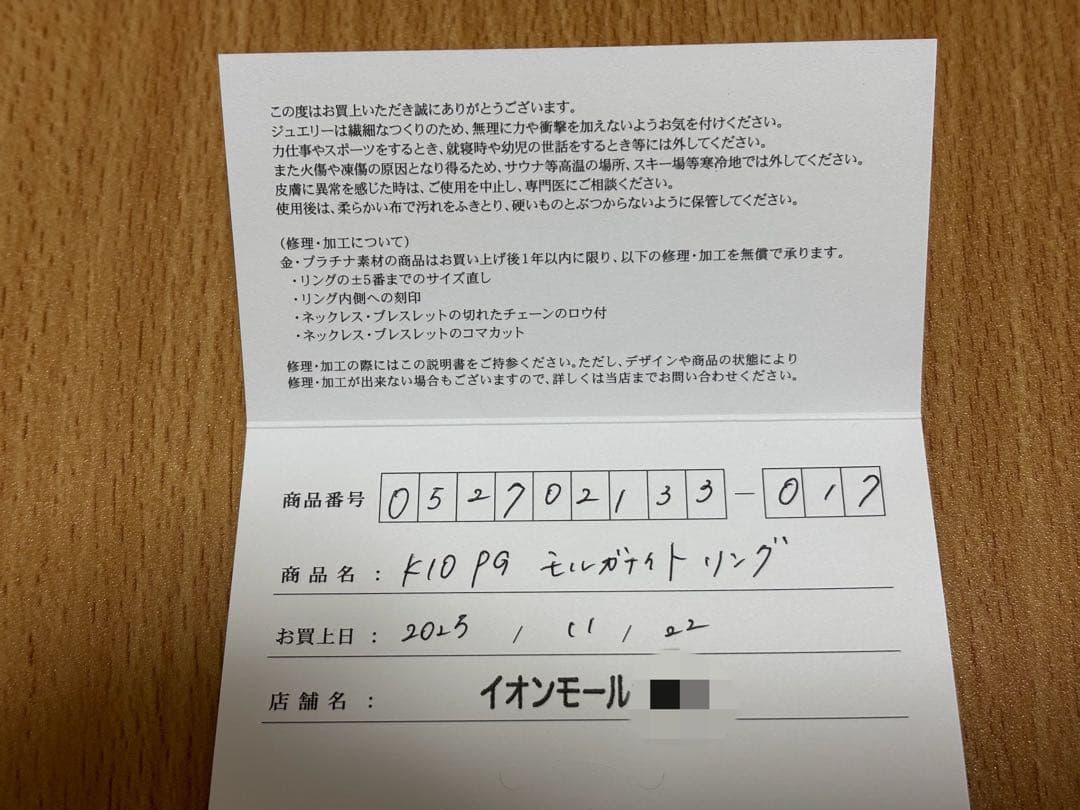 この度はお買上いただき誠にありがとうございます。
ジュエリーは繊細なつくりのため、無理に力や衝撃を加えないようお気を付けください。
力仕事やスポーツをするとき、就寝時や幼児の世話をするとき等には外してください。
また火傷や凍傷の原因となり得るため、サウナ等高温の場所、スキー場等寒冷地では外してください。
皮膚に異常を感じた時は、ご使用を中止し、専門医にご相談ください。
使用後は、柔らかい布で汚れをふきとり、硬いものとぶつからないように保管してください。
（修理・加工について）
金・プラチナ素材の商品はお買い上げ後1年以内に限り、以下の修理・加工を無償で承ります。
・リングの±5番までのサイズ直し
・リング内側への刻印
・ネックレス・ブレスレットの切れたチェーンのロウ付
・ネックレス・ブレスレットのコマカット
修理・加工の際にはこの説明書をご持参ください。ただし、デザインや商品の状態により
修理・加工が出来ない場合もございますので、詳しくは当店までお問い合わせください。
商品番号 052702133-017
商品名： K10 PG モルガナイトリング
お買上日： 2025 / 11 / 22
店舗名： イオンモール